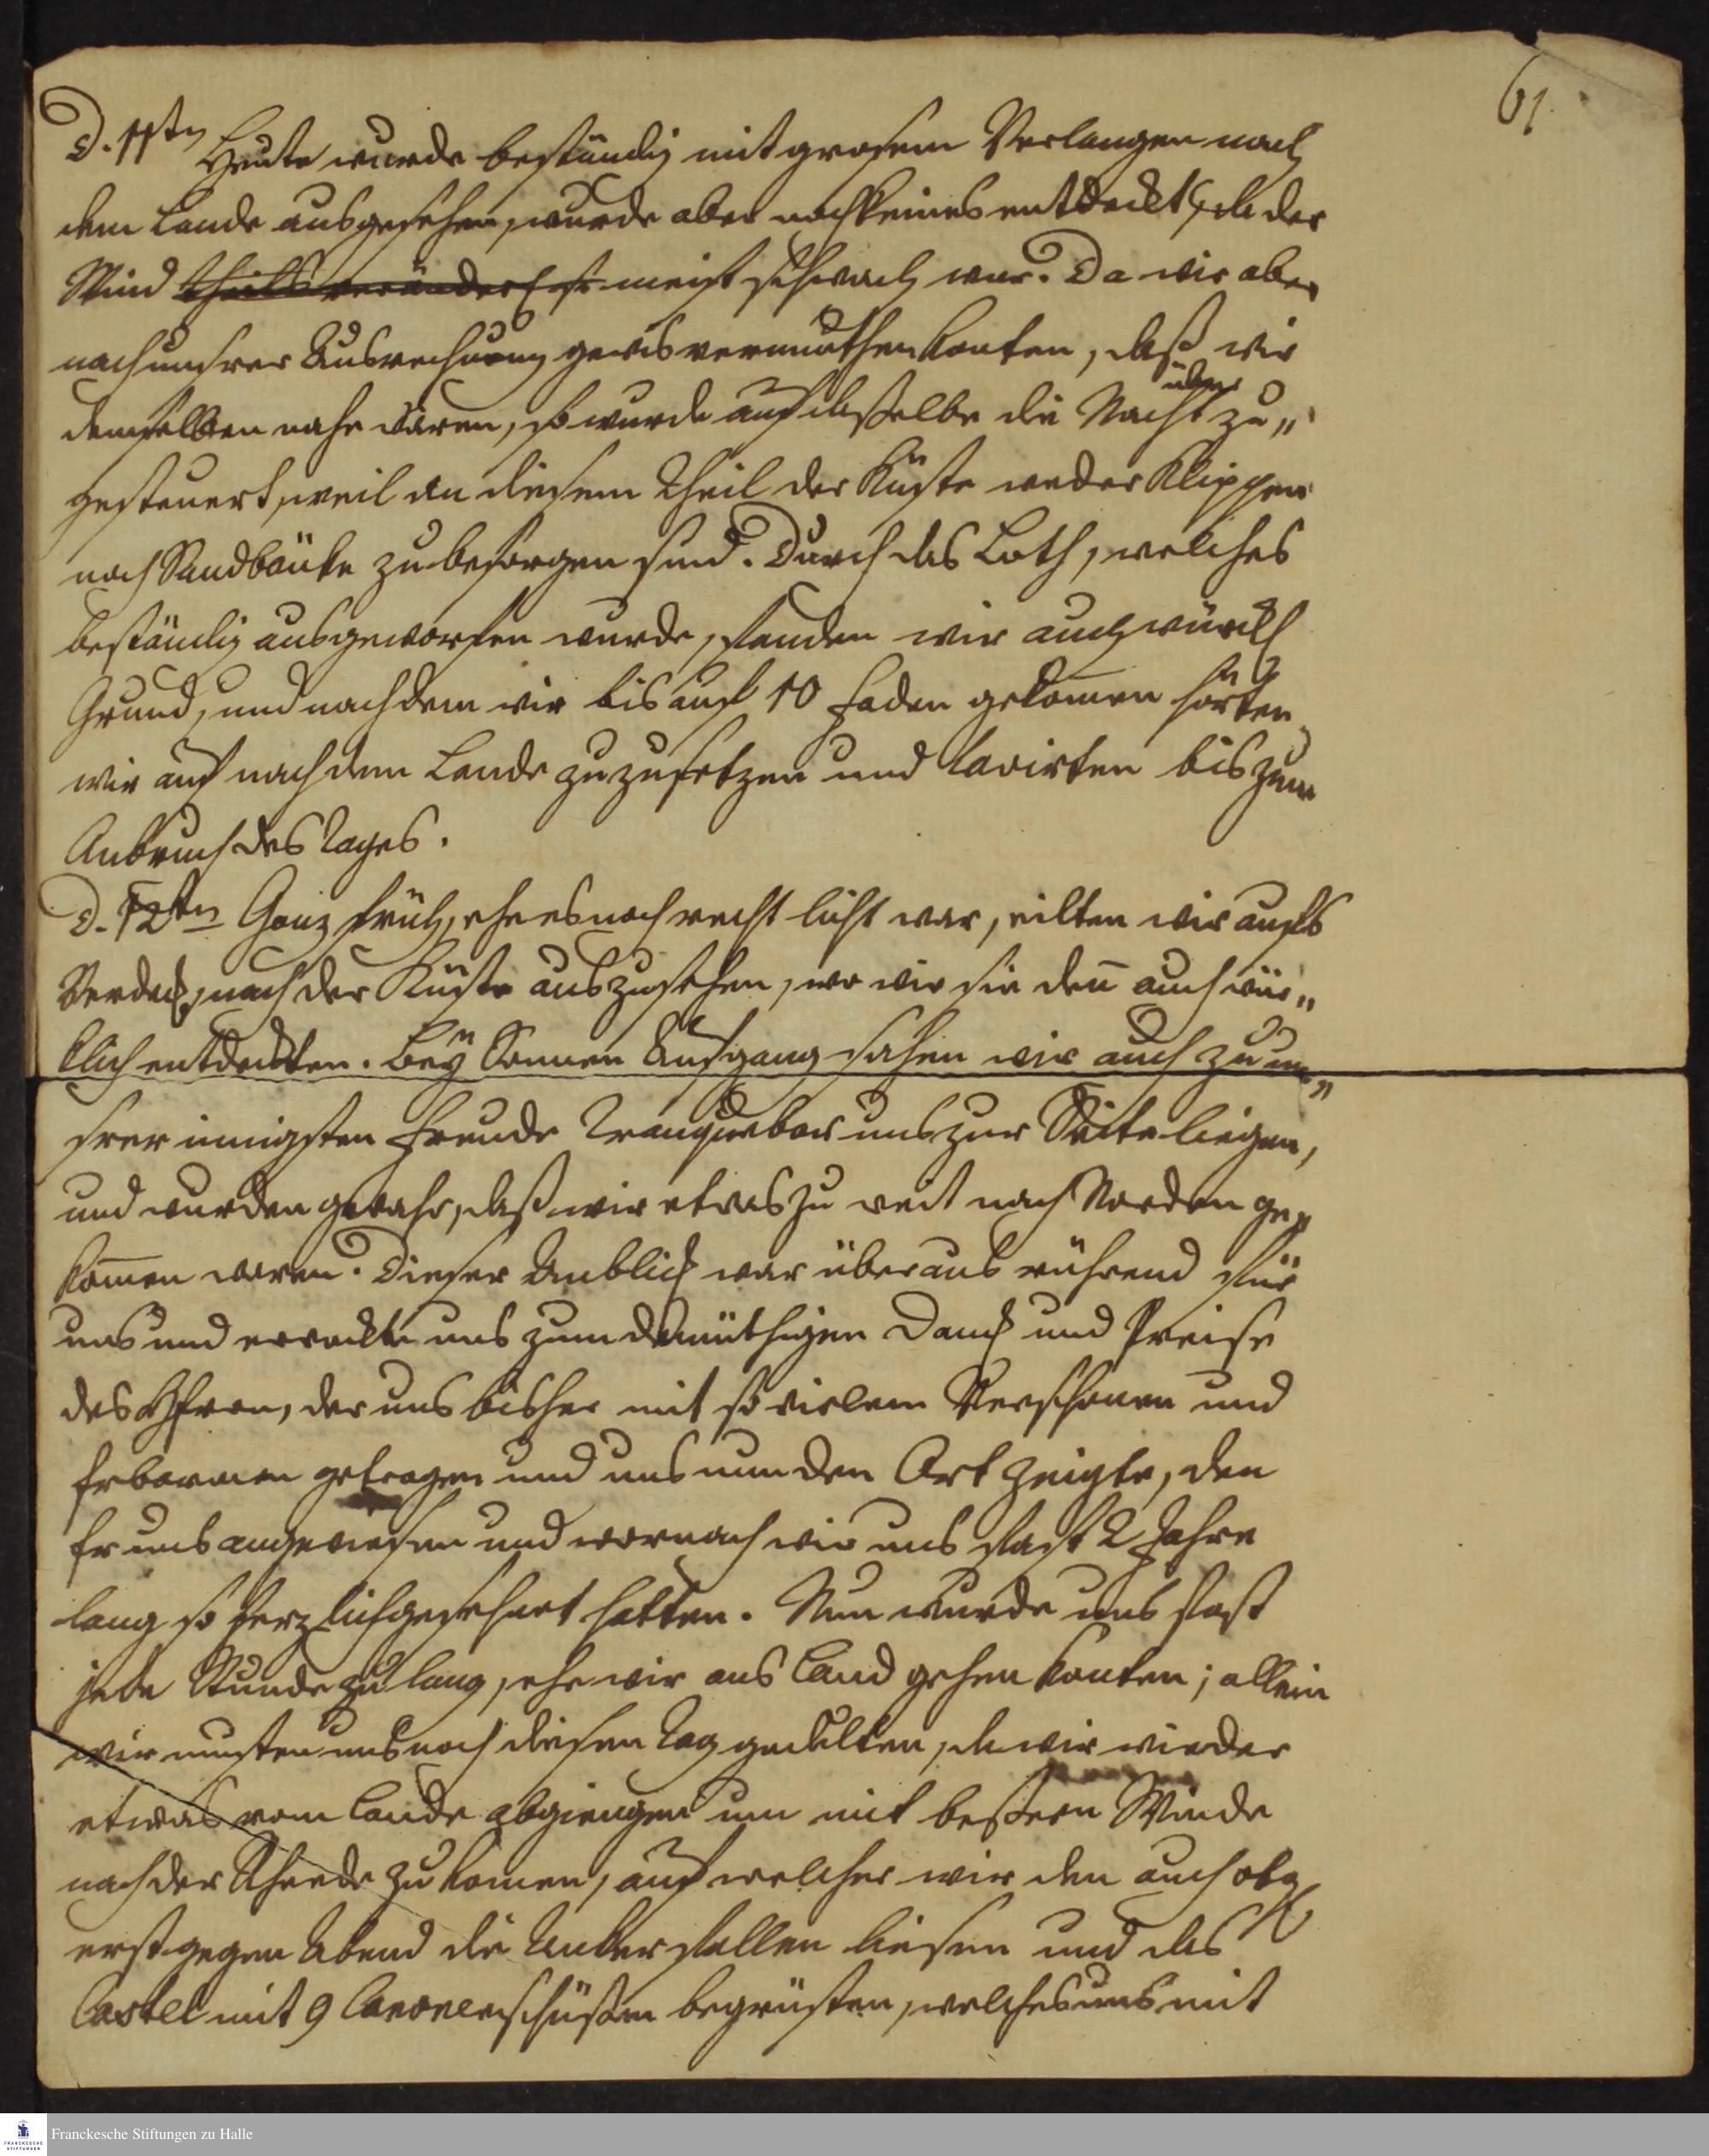 61.
D. 11ten Heute wurde beständig mit grosem Verlangen nach
dem Lande ausgesehen, wurde aber noch keines entdeckt, da der
Wind theils veränderl. theils meist schwach war. Da wir aber
nach unsrer Ausrechnung gewis vermuthen konten, daß wir
demselben nahe wären, so wurde auf dasselbe die Nacht über zu„
gesteuert, weil an diesem Theil der Küste weder Klippen
noch Sandbänke zu besorgen sind. Durch das Loth, welches
beständig ausgeworfen wurde, fanden wir auch würckl.
Grund, und nachdem wir bis auf 10 Faden gekom̄en hörten
wir auf nach dem Lande zuzusetzen und lavirten bis zum
Anbruch des Tages.
D. 12ten Ganz früh, ehe es noch recht licht war, eilten wir aufs
Verdeck, nach der Küste auszusehen, wo wir sie den̄ auch wür„
klich entdeckten. Bey Sonnen Aufgang sahen wir auch zu un„
srer innigsten Freude Tranquebar uns zur Seite liegen,
und wurden gewahr, daß wir etwas zu weit nach Norden ge„
kom̄en waren. Dieser Anblick war überaus rührend für
uns und erweckte uns zum demüthigen Danck und Preise
des HErrn, der uns bisher mit so vielem Verschonen und
Erbarmen getragen und uns nun den Ort zeigte, den
Er uns angewiesen und wornach wir uns fast 2 Jahre
lang so herzlich gesehnet hatten. Nun wurde uns fast
jede Stunde zu lang, ehe wir ans Land gehen konten; allein
wir musten uns noch diesen Tag gedulten, da wir wieder
etwas vom Lande abgiengen um mit beßern Winde
nach der Rheede zu komen, auf welcher wir den auch obgl.
erst gegen Abend die Anker fallen liesen und das
Castel mit 9 Canonenschüßen begrüsten, welches uns mit
Franckesche Stiftungen zu Halle